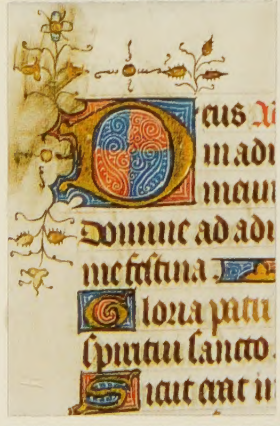 Deus A
in adi
meum
Domine ad adi
me festina
Gloria patri
spiritui sancto
Sicut erat i